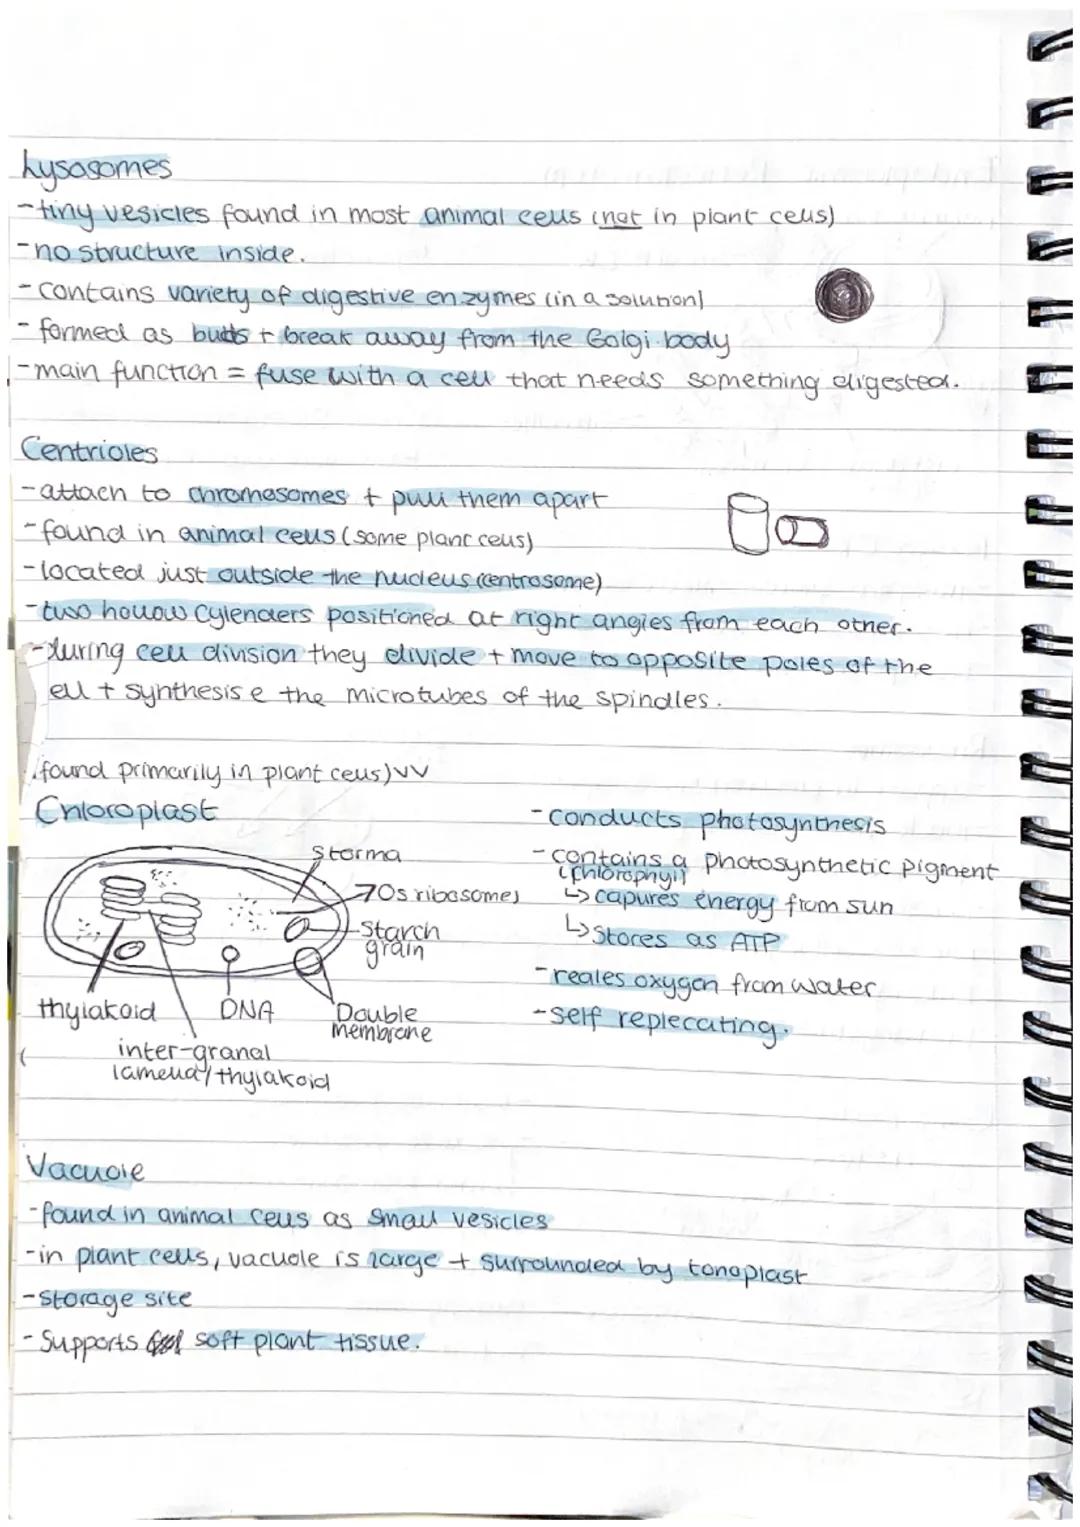 Lysosomes
-tiny vesicles found in most animal cells (not in plant cells)
-no structure inside.
-contains variety of digestive enzymes (in a solution)
-formed as buds + break away from the Golgi body
-main function = fuse with a cell that needs something digested.
Centrioles
-attach to chromosomes + pull them apart
-found in animal cells (some plant cells)
-located just outside the nucleus (centrosome)
-two hollow cylenders positioned at right angles from each other.
-during cell division they divide + move to opposite poles of the
ell + synthesise the microtubes of the spindles.
found primarily in plant cells) vv
Chloroplast
Storma
70s ribosomes
Starch
grain
thylakoid
DNA
Double
membrane
inter-granal
lamella/thylakoid
-conducts photosynthesis
-contains a photosynthetic pigment
(chlorophyll)
↳ capures energy from sun
↳ stores as ATP
-reales oxygen from water
-self replecating.
Vacuole
-found in animal cells as small vesicles
-in plant cells, vacuole is large + surrounded by tonoplast
-storage site
-Supports soft plant tissue.